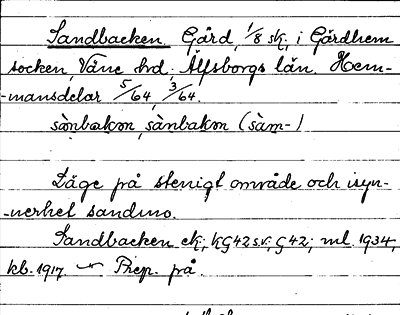 Sandbacken Gård, 1/8 sk, i Gärdhem
socken, Väne hd, Älfsborgs län. Hem-
-mansdelar 5/64, 3/64.
sànbakɷn, sànbakɷn (sàm-)
Läge på stenigt område och isyn-
-nerhet sandmo.
Sandbacken ek; kG42s.v., G42; ml. 1934,
kb. 1917. Prep. på.